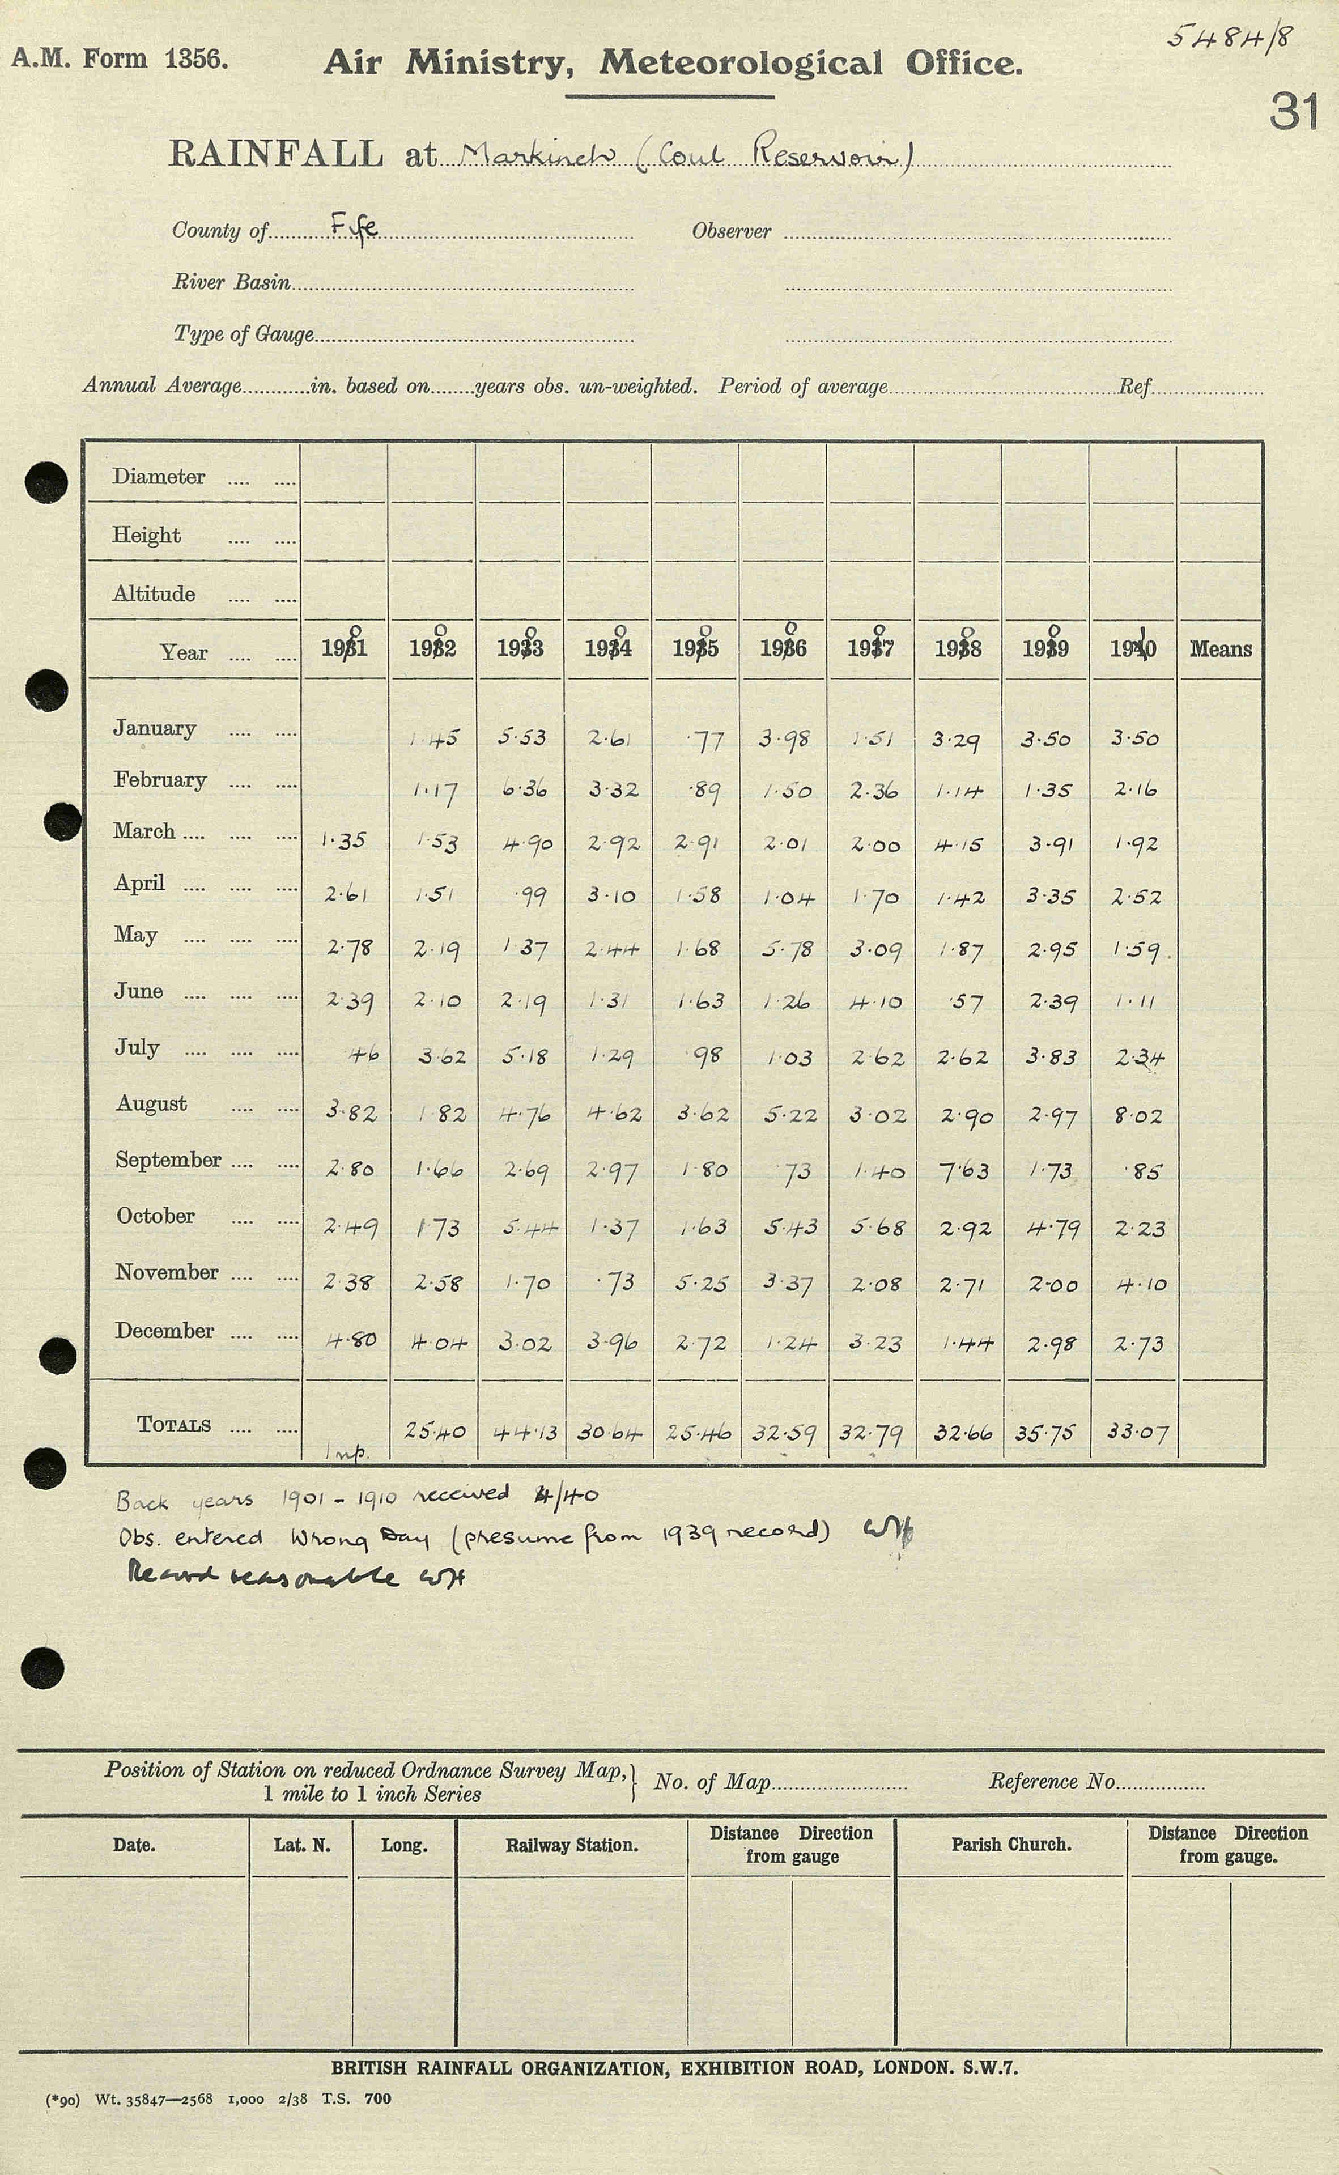 5484/8
A.M. Form 1356. Air Ministry, Meteorological Office.
31
RAINFALL at Markinch (Coul Reservoir)
County of Fife Observer
River Basin
Type of Gauge
Annual Average in. based on years obs. un-weighted. Period of average Ref.
Diameter
Height
Altitude
Year 1901 1902 1903 1904 1905 1906 1907 1908 1909 1910 Means
January 1.45 5.53 2.61 .77 3.98 1.51 3.29 3.50 3.50
February 1.17 6.36 3.32 .89 1.50 2.36 1.14 1.35 2.16
March 1.35 1.53 4.90 2.92 2.91 2.01 2.00 4.15 3.91 1.92
April 2.61 1.51 .99 3.10 1.58 1.04 1.70 1.42 3.35 2.52
May 2.78 2.19 1.37 2.44 1.68 5.78 3.09 1.87 2.95 1.59
June 2.39 2.10 2.19 1.31 1.63 1.26 4.10 .57 2.39 1.11
July .46 3.62 5.18 1.29 .98 1.03 2.62 2.62 3.83 2.34
August 3.82 1.82 4.76 4.62 3.62 5.22 3.02 2.90 2.97 8.02
September 2.80 1.66 2.69 2.97 1.80 .73 1.40 7.63 1.73 .85
October 2.49 1.73 5.44 1.37 1.63 5.43 5.68 2.92 4.79 2.23
November 2.38 2.58 1.70 .73 5.25 3.37 2.08 2.71 2.00 4.10
December 4.80 4.04 3.02 3.96 2.72 1.24 3.23 1.44 2.98 2.73
TOTALS Inp. 25.40 44.13 30.64 25.46 32.59 32.79 32.66 35.75 33.07
Back years 1901 - 1910 received 4/40
Obs. entered Wrong Day (presume from 1939 record) WH
Record reasonable WH
Position of Station on reduced Ordnance Survey Map,} No. of Map Reference No.
1 mile to 1 inch Series
Date. Lat. N. Long. Railway Station. Distance Direction from gauge Parish Church. Distance Direction from gauge.
BRITISH RAINFALL ORGANIZATION, EXHIBITION ROAD, LONDON. S.W.7.
(*90) Wt. 35847—2568 1,000 2/38 T.S. 700